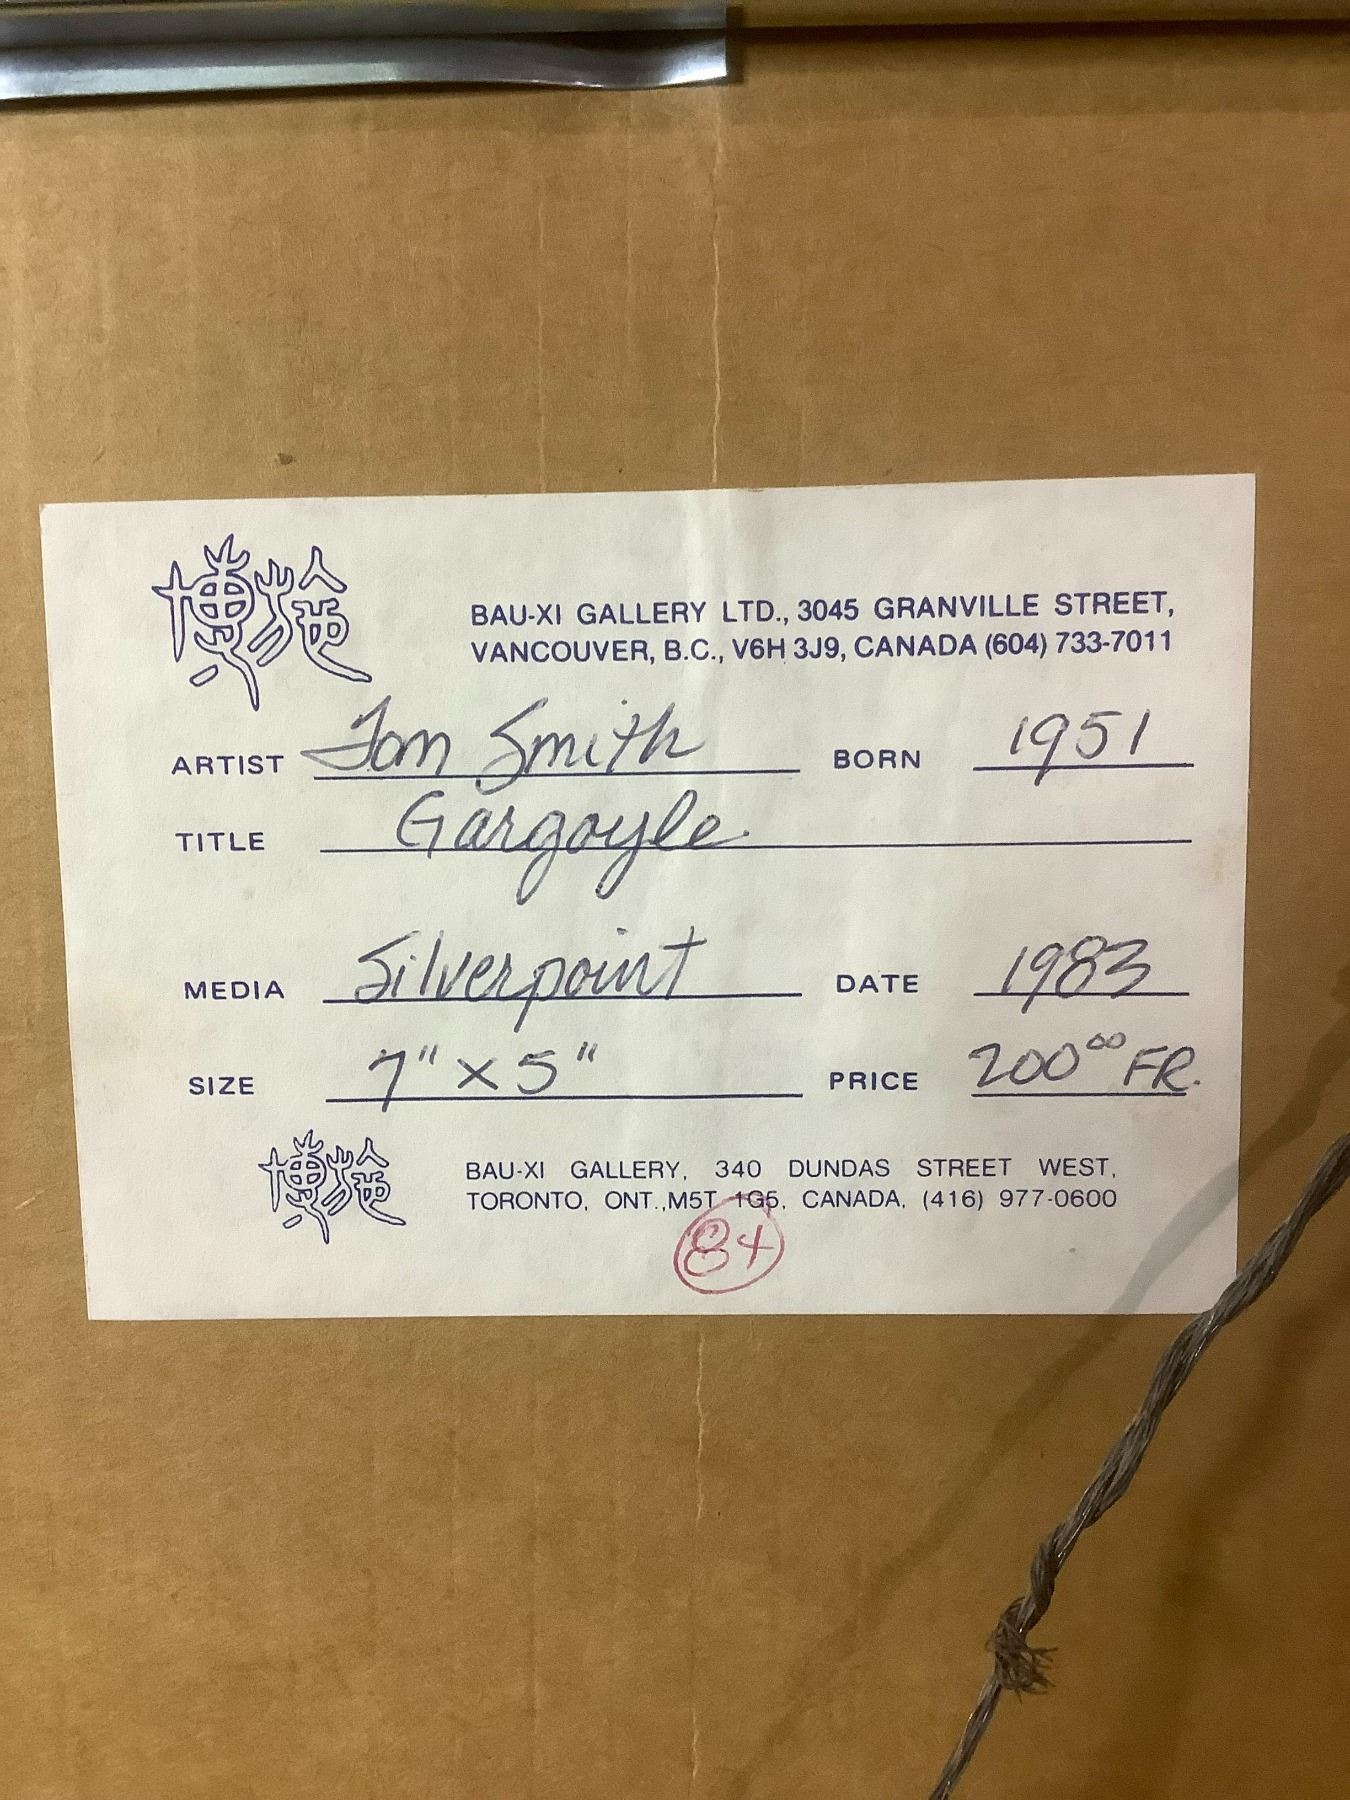 BAU-XI GALLERY LTD., 3045 GRANVILLE STREET,
VANCOUVER, B.C., V6H 3J9, CANADA (604) 733-7011
ARTIST Tom Smith BORN 1951
TITLE Gargoyle
MEDIA Silverpoint DATE 1983
SIZE 7" x 5" PRICE 200⁰⁰ FR.
BAU-XI GALLERY, 340 DUNDAS STREET WEST,
TORONTO, ONT., M5T 1G5, CANADA, (416) 977-0600
84